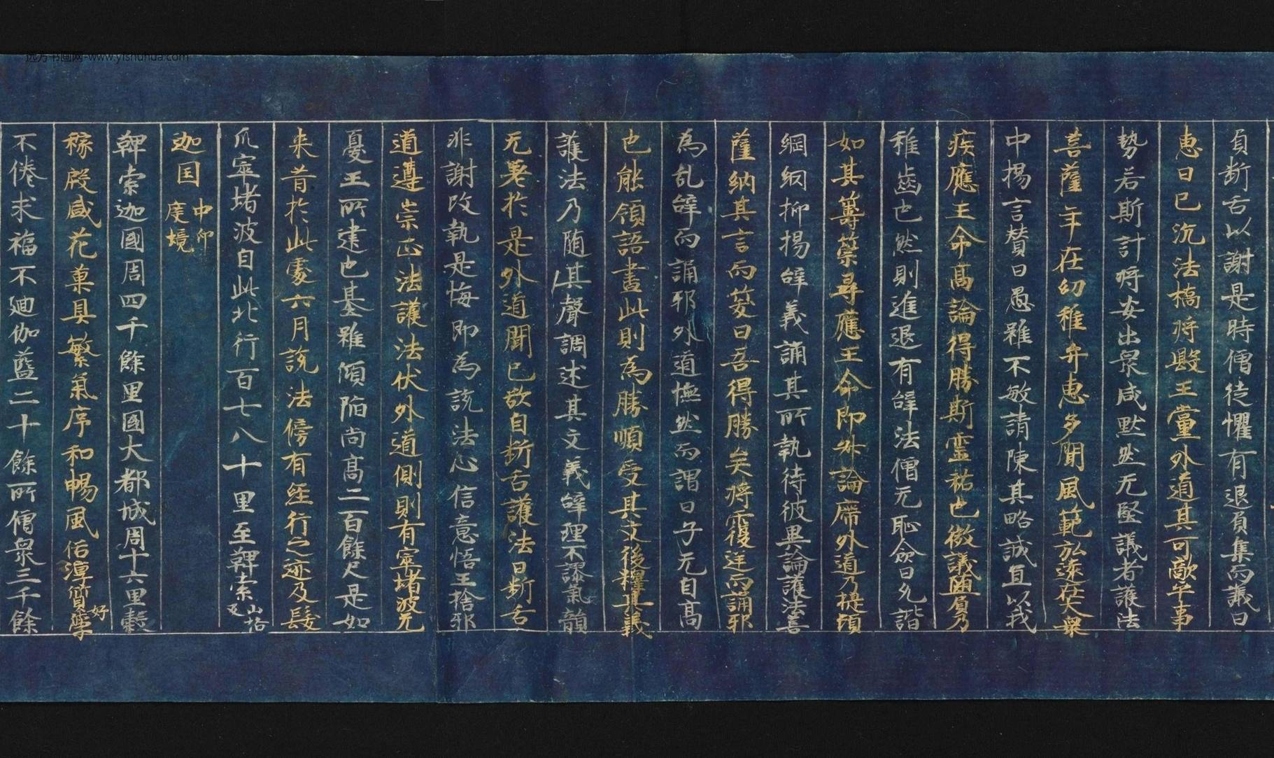 負斷舌以謝是時僧徒懼有退負集而議曰
惠日已沉法橋將毀王黨外道其可敵乎事
勢若斯計將安出衆咸默然无竪議者護法
菩薩年在幼稚弁惠多聞風範弘遠在大衆
中揚言贊曰愚雖不敏請陳其略誠宜以我
疾應王命高論得勝斯靈祐也微議墮負乃
稚齒也然則進退有辞法僧无恥僉曰允諧
如其籌策尋應王命即昇論席外道乃提頓
綱網抑揚辞義誦其所執待彼異論護法菩
薩納其言而笑曰吾得勝矣將覆逆而誦邪
為乱辞而誦邪外道憮然而謂曰子无自高
也能領語盡此則為勝順受其文後釋其義
護法乃随其聲調述其文義辞理不謬氣韻
无差於是外道聞已欲自斬舌護法曰斷舌
非謝改執是悔即為說法心信意悟王捨邪
道遵崇正法護法伏外道側則有窣堵波无
憂王所建也基雖傾陷尚高二百餘尺是如
来昔於此處六月說法傍有經行之迹及髮
爪窣堵波自此北行百七八十里至鞞索山格反
迦国中印度境
鞞索迦國周四千餘里國大都城周十六里穀
稼殷盛花菓具繁氣序和暢風俗淳質好學
不倦求福不廻伽藍二十餘所僧衆三千餘
www.yishuhua.com